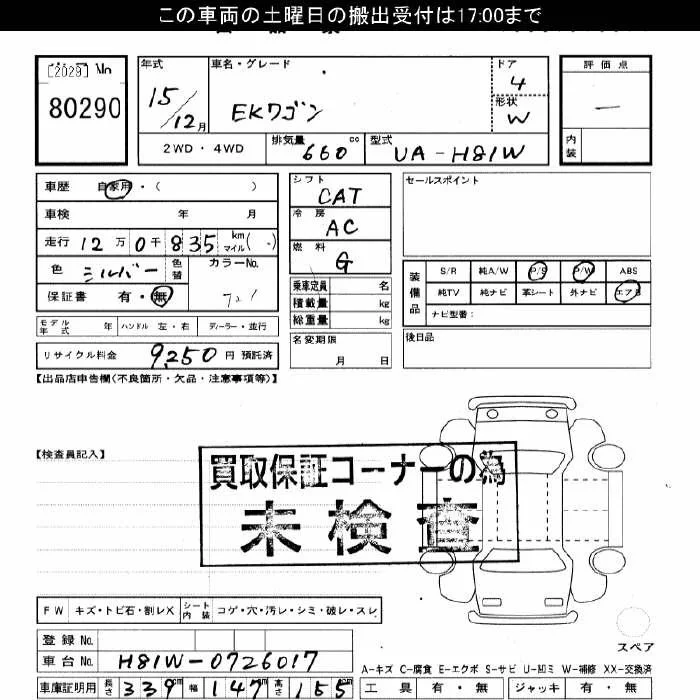 この車両の土曜日の搬出受付は17:00まで
[2029] No
80290
年式 15/12月
車名・グレード EKワゴン
ドア 4
形状 W
評価点 ー
内装
2WD・4WD
排気量 660 cc
型式 UA-H81W
車歴 自家用・( )
車検 年 月
走行 12万0千835 km マイル( )
色 シルバー 色替 カラーNo.
保証書 有・無
モデル年式 年 ハンドル 左・右 ディーラー・並行
リサイクル料金 9,250 円 預託済
シフト CAT
冷房 AC
燃料 G
乗車定員 名
積載量 kg
総重量 kg
名変期限 月 日
セールスポイント
装備品
S/R 純A/W P/S P/W ABS
純TV 純ナビ 革シート 外ナビ エアB
ナビ型番:
後日品
【出品店申告欄(不良箇所・欠品・注意事項等)】
【検査員記入】
買取保証コーナーの為
未検査
FW キズ・トビ石・割レX シート内装 コゲ・穴・汚レ・シミ・破レ・スレ
登録No.
車台No. H81W-0726017
車庫証明用 長さ 339cm 幅 147cm 高さ 155cm
スペア
A-キズ C-腐食 E-エクボ S-サビ U-凹ミ W-補修 XX-交換済
工具 有・無 ジャッキ 有・無